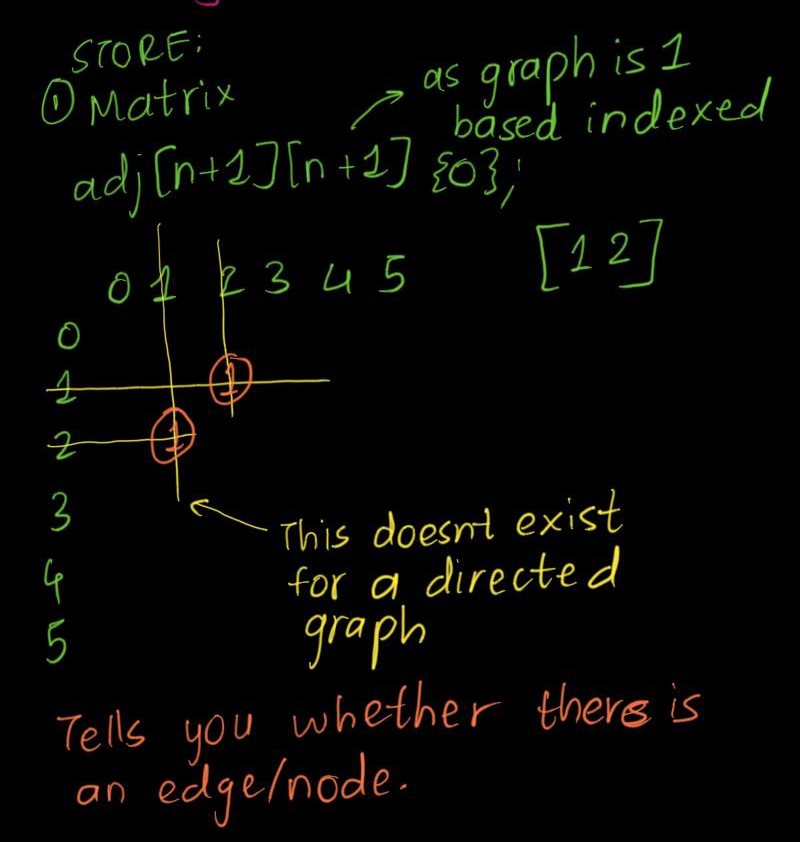 STORE:
① Matrix
as graph is 1
based indexed
adj[n+1][n+1] {0};
[1 2]
0 1 2 3 4 5
0
1 1
2 1
3
4
5
This doesnt exist
for a directed
graph
Tells you whether there is
an edge/node.